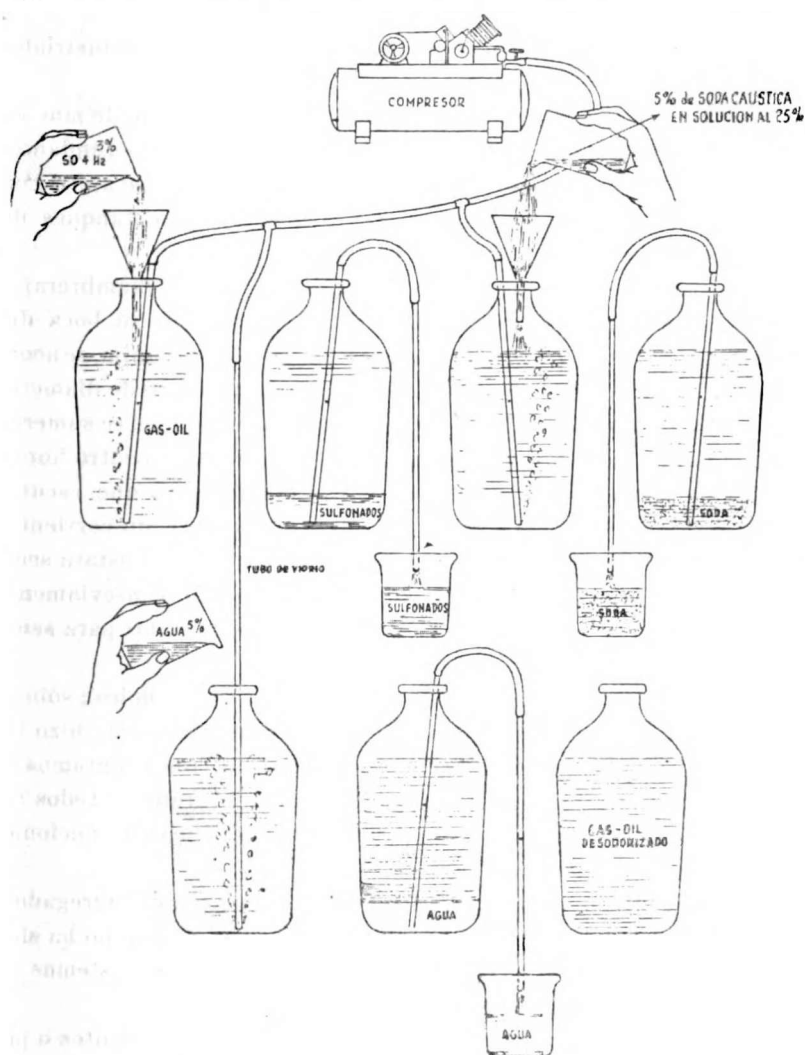 COMPRESOR
5% de SODA CAUSTICA
EN SOLUCION AL 25%
3%
SO 4 Hz
GAS-OIL
SULFONADOS
SODA
TUBO DE VIDRIO
SULFONADOS
SODA
AGUA 5%
GAS-OIL
DESODORIZADO
AGUA
AGUA